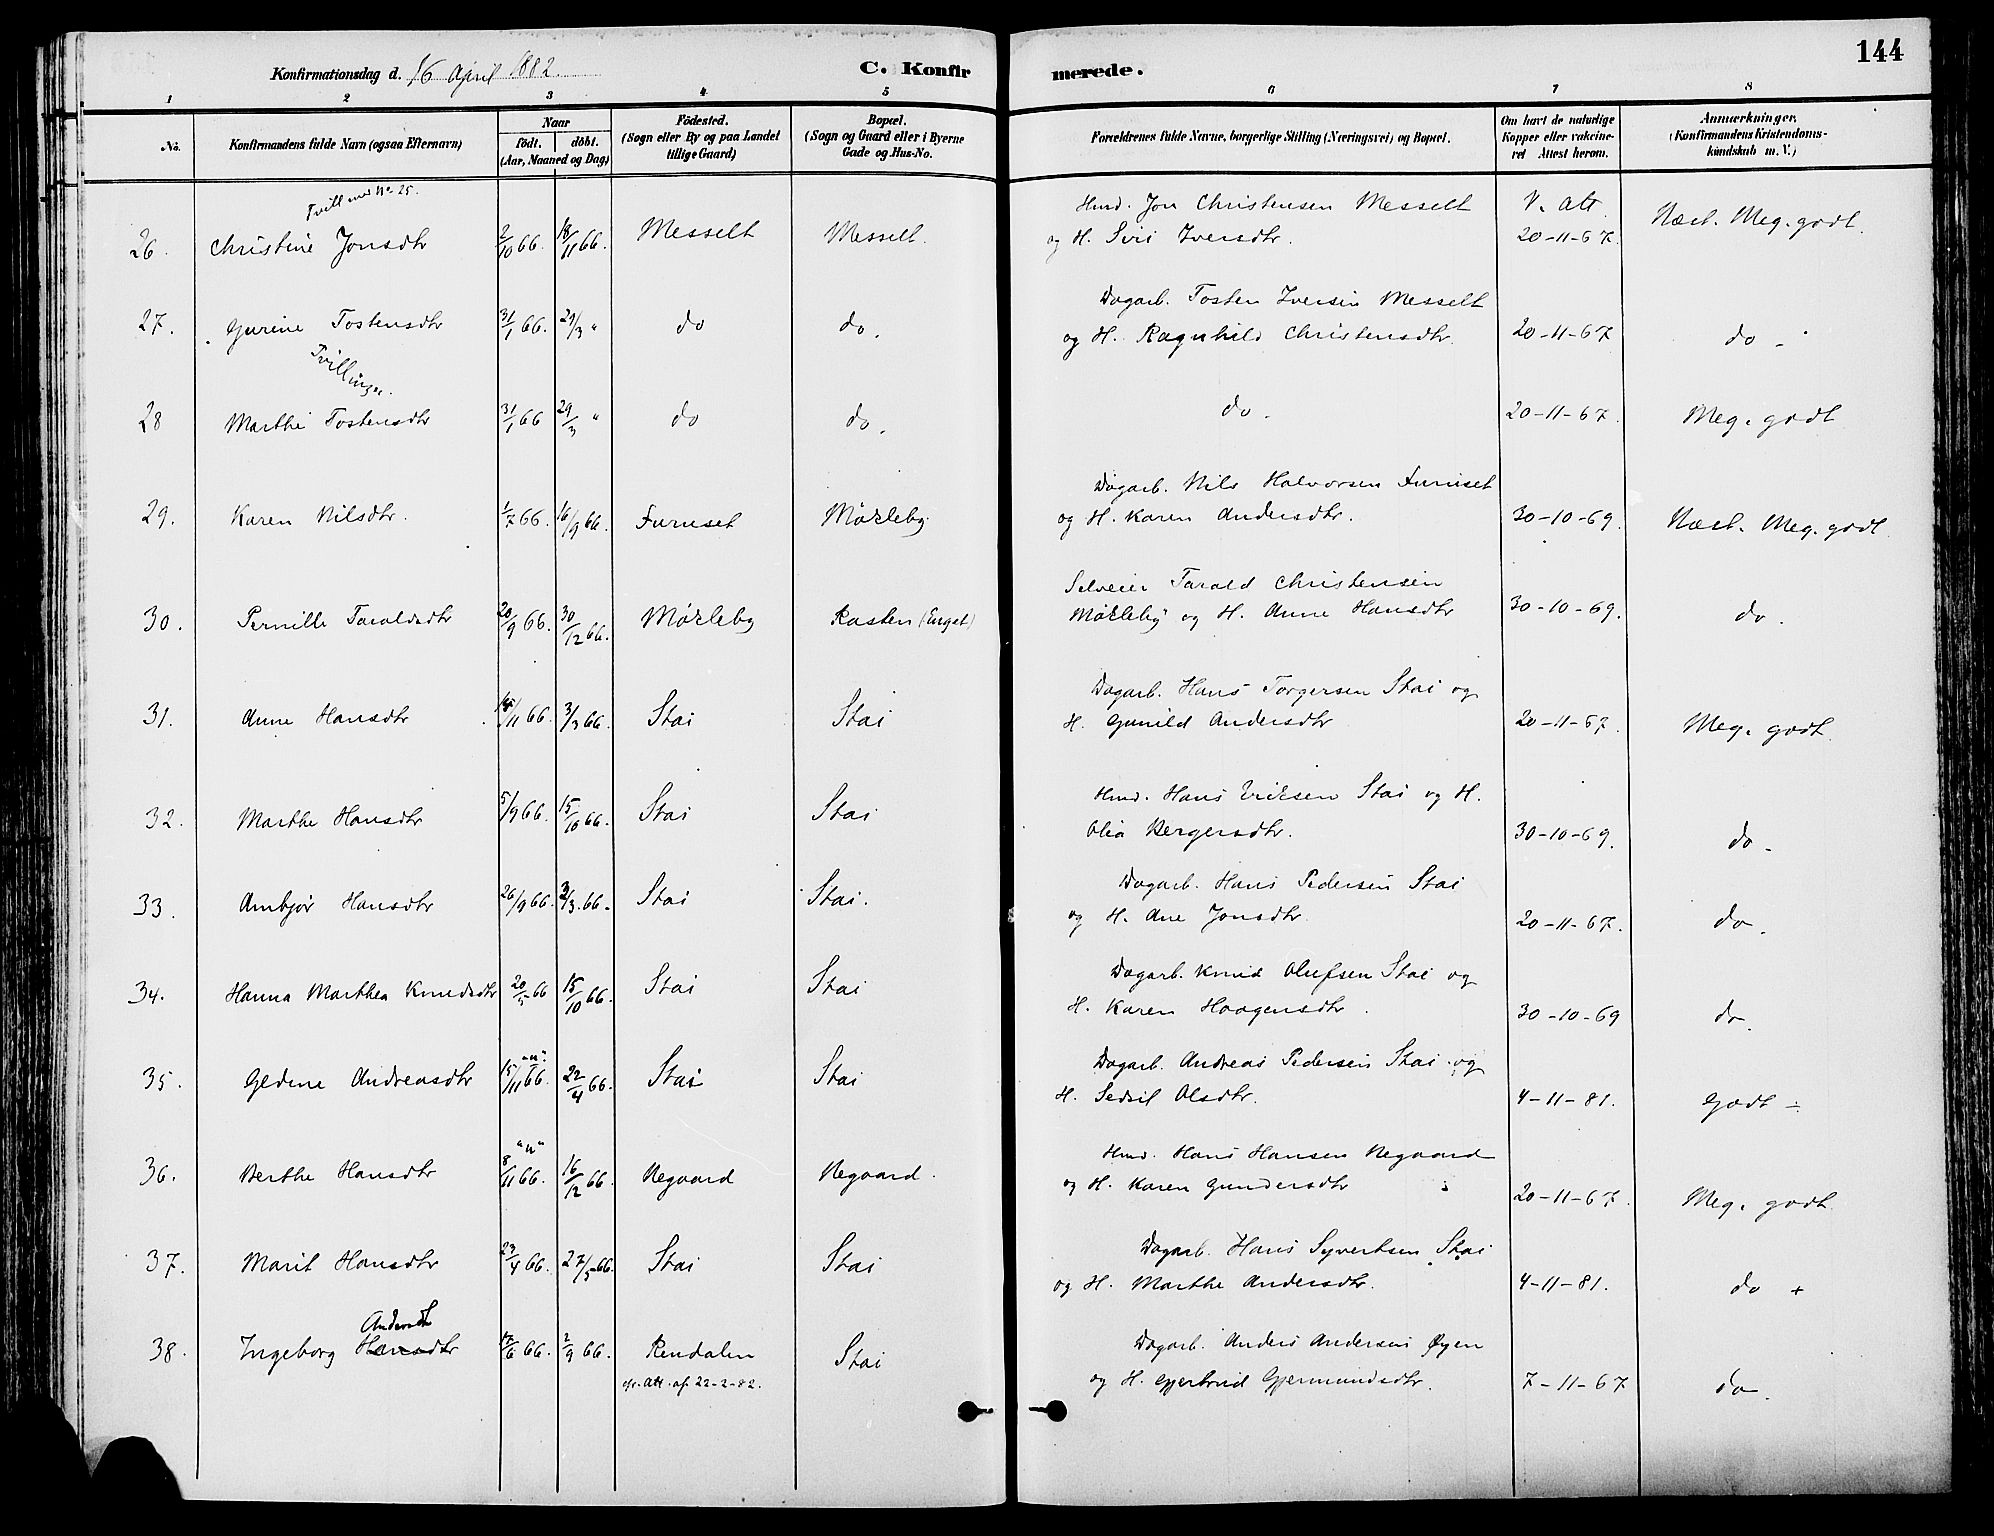 144
Konfirmationsdag d. 16 April 1882. C. Konfirmerede.
1 2 3 4 5 6 7 8
No. Konfirmandens fulde Navn (ogsaa Efternavn) Naar födt. döbt. (Aar, Maaned og Dag) Födested. (Sogn eller By og paa Landet tillige Gaard) Bopæl. (Sogn og Gaard eller i Byerne Gade og Hus-No. Forældrenes fulde Navne, borgerlige Stilling (Næringsvei) og Bopæl. Om havt de naturlige Kopper eller vakcineret Attest herom. Anmærkninger. (Konfirmandens Kristendomskundskab m. V.)
Tvill med No 25.
26. Christine Jonsdtr 2/10 66. 18/11 66. Messelt Messelt. Hmd. Jon Christensen Messelt V. Att. Næst. Meg. godt.
og H. Siri Iversdtr. 20-11-67.
27. Gurine Tostensdtr 31/1 66. 29/3 " do do. Dagarb. Tosten Iversen Messelt
og H. Ragnhild Christensdtr. 20-11-67 do -
Tvillinger.
28 Marthe Tostensdtr 31/1 66 29/3 " do do. do. 20-11-67. Meg. godt
29. Karen Nilsdtr. 1/7 66. 16/9 66. Furuset Mökleby. Dagarb. Nils Halvorsen Furuset
og H. Karen Andersdtr. 30-10-69. Næst. Meg. godt
30. Pernille Taraldsdtr 20/9 66. 30/12 66. Mökleby Rasten (Enget) Selveier Tarald Christensen
Mökleby og H. Anne Hansdtr 30-10-69. do.
31. Anne Hansdtr /11 66. 3/3 66. Stai Stai Dagarb. Hans Torgersen Stai og
H. Gunild Andersdtr 20-11-67. Meg. godt.
32. Marthe Hansdtr 5/9 66. 15/10 66. Stai Stai Hmd. Hans Eriksen Stai og H.
Olia Bergersdtr. 30-10-69. do -
33. Ambjör Hansdtr 26/9 66. 3/3. 66. Stai Stai. Dagarb. Hans Pedersen Stai
og H. Ane Jonsdtr. 20-11-67. do.
34. Hanna Marthea Knudsdtr 20/5 66 15/10 66. Stai Stai Dagarb. Knud Olufsen Stai og
H. Karen Haagensdtr. 30-10-69 do.
"u"
35. Gedine Andreasdtr 15/11 66. 22/4 66. Stai Stai Dagarb. Andreas Pedersen Stai og
H. Sedsil Olsdtr. 4-11-81. Godt ÷
"u"
36. Berthe Hansdtr 8/11 66. 16/12 66. Negaard Negaard. Hmd. Hans Hansen Negaard
og H. Karen Gundersdtr 20-11-67. Meg. godt
37. Marit Hansdtr 23/4 66. 27/5-66. Stai Stai Dagarb. Hans Syvertsen Stai
og H. Marthe Andersdtr. 4-11-81. do +
Andersdtr
38. Ingeborg Hansdtr /6 66. 2/9 66. Rendalen Stai Dagarb. Anders Andersen Øyen
efr. Att. af 22-2-82. og H. Gjertrud Gjermundsdtr. 7-11-67 do.